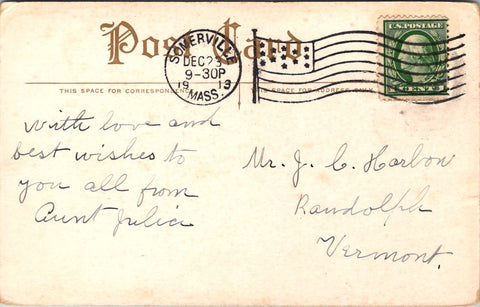 Post Card
SOMERVILLE
DEC 23
9-30P
1913
MASS.
U.S. POSTAGE
CENTS
THIS SPACE FOR CORRESPONDENCE
THIS SPACE FOR ADDRESS ONLY
With love and
best wishes to
you all from
Aunt Julia
Mr. J. C. Harbon
Randolph
Vermont.